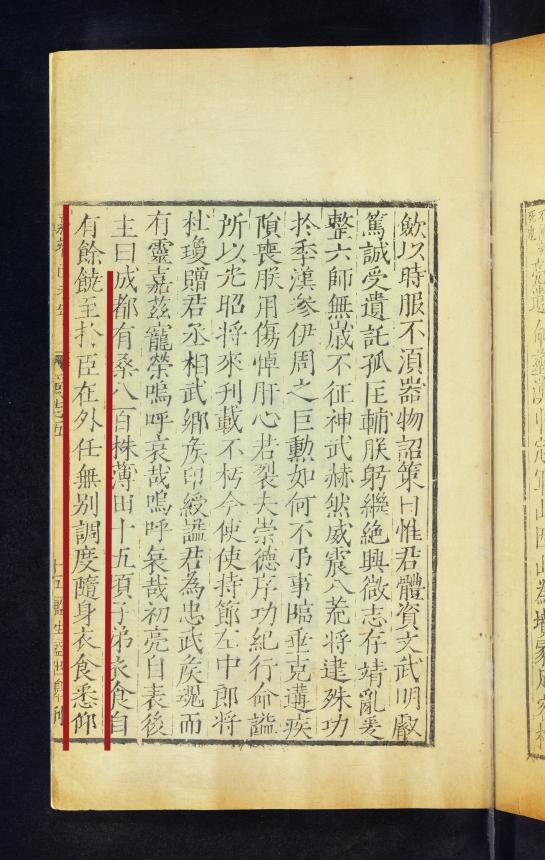 斂以時服不湏器物詔策曰惟君體資文武明叡
篤誠受遺託孤匡輔朕躬繼絕興微志存靖亂爰
整六師無歲不征神武赫然威震八荒將建殊功
扵季漢參伊周之巨勳如何不弔事臨垂克遘疾
隕喪朕用傷悼肝心若裂夫崇德序功紀行命謚
所以光昭將來刊載不朽今使使持節左中郎將
杜瓊贈君丞相武鄉侯印綬謚君為忠武侯魂而
有靈嘉茲寵榮嗚呼哀哉嗚呼哀哉初亮自表後
主曰成都有桑八百株薄田十五頃子弟衣食自
有餘饒至扵臣在外任無別調度隨身衣食悉仰